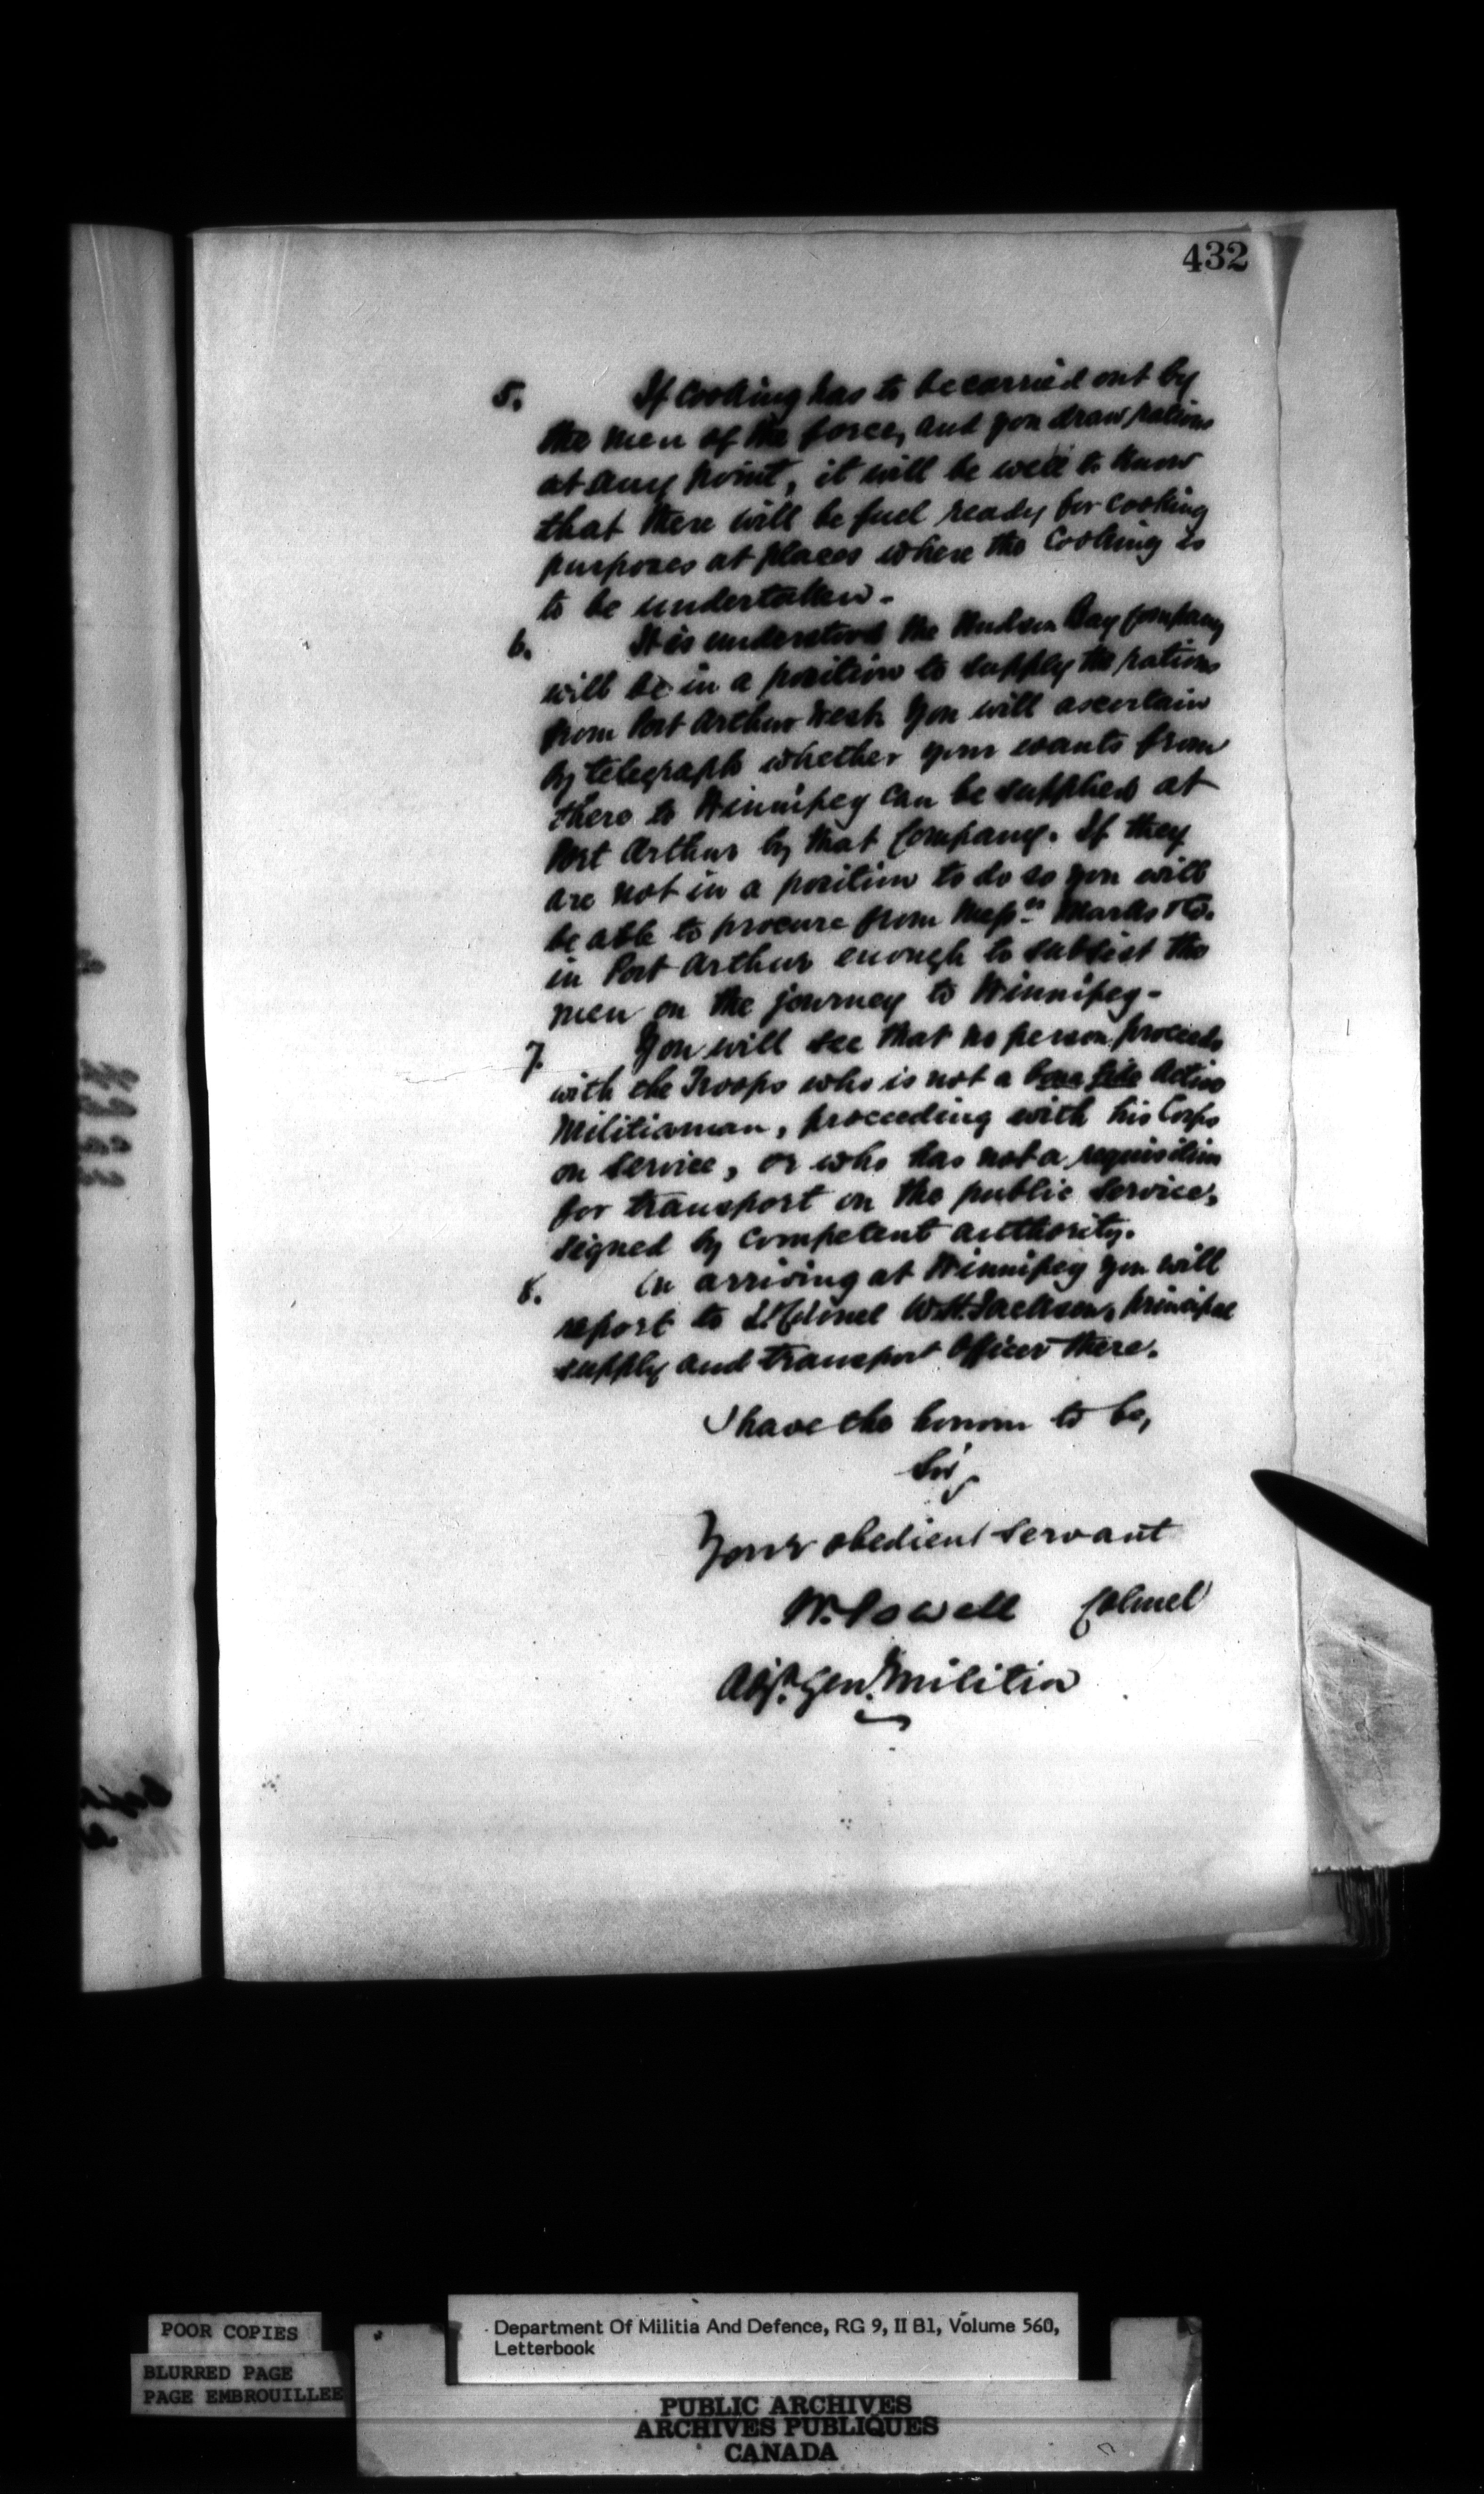 432
5. If cooking has to be carried out by
the men of the force, and you draw rations
at any point, it will be well to know
that there will be fuel ready for cooking
purposes at places where the cooking is
to be undertaken.
6. It is understood the Hudson Bay Company
will be in a position to supply the rations
from Port Arthur West. You will ascertain
by telegraph whether your wants from
there to Winnipeg can be supplied at
Port Arthur by that Company. If they
are not in a position to do so you will
be able to procure from Messrs Marks & Co.
in Port Arthur enough to subsist the
men on the journey to Winnipeg-
7. You will see that no person proceeds
with the Troops who is not a bona fide Active
Militiaman, proceeding with his Corps
on Service, or who has not a requisition
for transport on the public service,
signed by competent authority.
8. On arriving at Winnipeg you will
report to Lt. Colonel W.H. Jackson, principal
supply and transport Officer there.
I have the honour to be,
Sir,
Your obedient servant
W. Powell Colonel
Adjt. Genl. Militia
POOR COPIES
BLURRED PAGE
PAGE EMBROUILLEE
Department Of Militia And Defence, RG 9, II B1, Volume 560,
Letterbook
PUBLIC ARCHIVES
ARCHIVES PUBLIQUES
CANADA